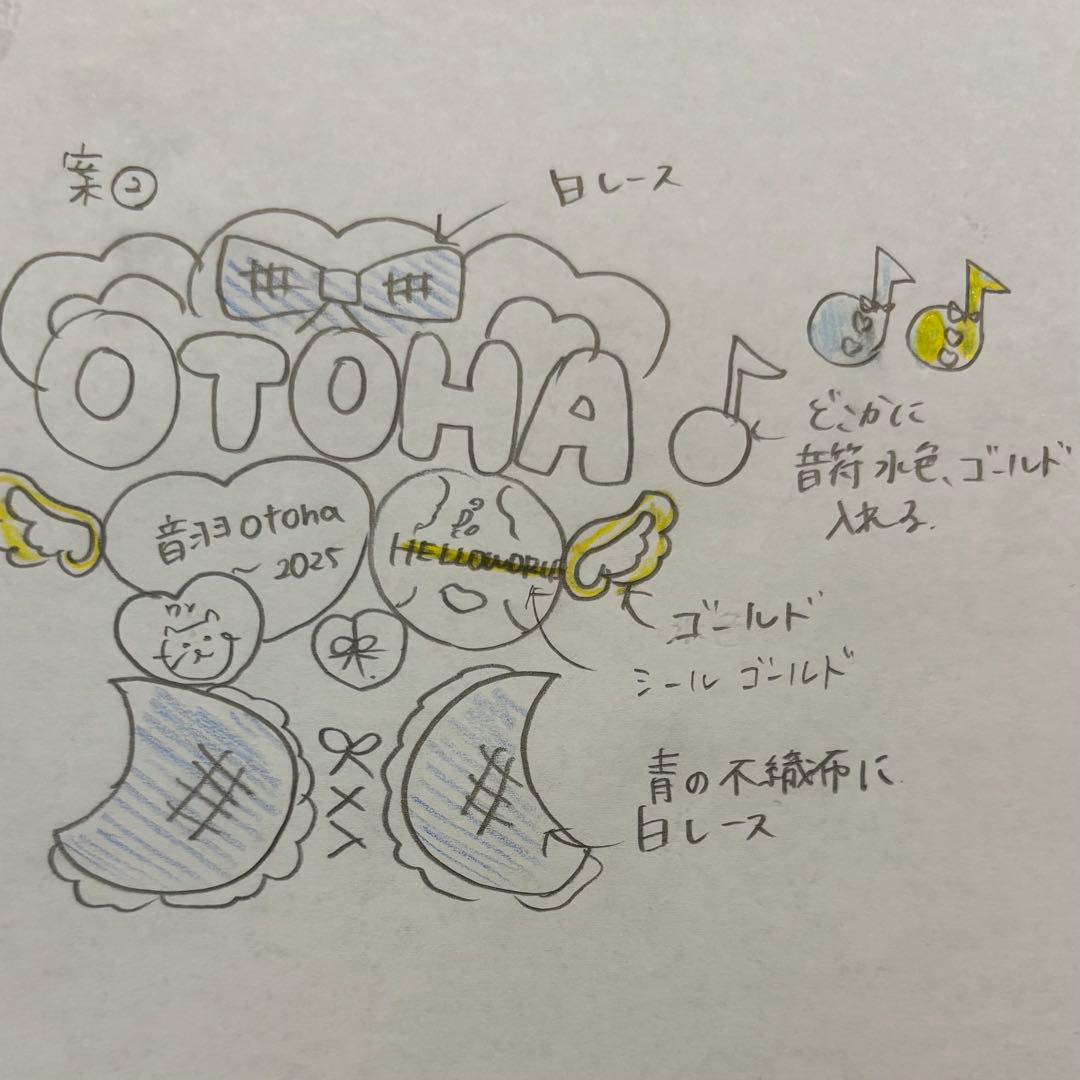 案②
白レース
OTOHA
どこかに
音符 水色、ゴールド
入れる.
音羽 otoha
~ 2025
HELLOWORLD
ゴールド
シール ゴールド
青の不織布に
白レース